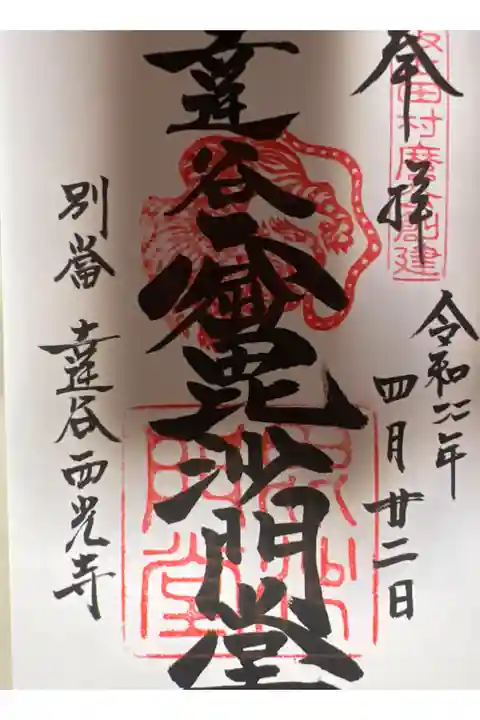 奉拝
坂上田村麿公創建
令和年
四月廿二日
達谷窟毘沙門堂
毘沙門堂
別當 達谷西光寺